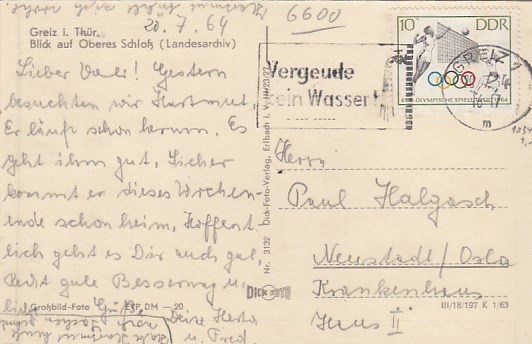 6600
20.7.64
Greiz i. Thür.
Blick auf Oberes Schloß (Landesarchiv)
Lieber Vater! Gestern
besuchten wir Hartmut.
Er läuft schon herum. Es
geht ihm gut, Sicher
kommt er dieses Wochen-
ende schon heim, Hoffent-
lich geht es Dir auch gut,
Recht gute Besserung u.
Deine Herta
u. Fred
Großbild-Foto EVP DM —20
Nr. 3132 Dick-Foto-Verlag, Erlbach i. V.
DICK
Vergeude
kein Wasser!
10 DDR
OLYMPISCHE SPIELE
GREIZ 1
m
Herrn
Paul Halgasch
Neustadt/Orla
Krankenhaus
Haus II
III/18/197 K 1/63